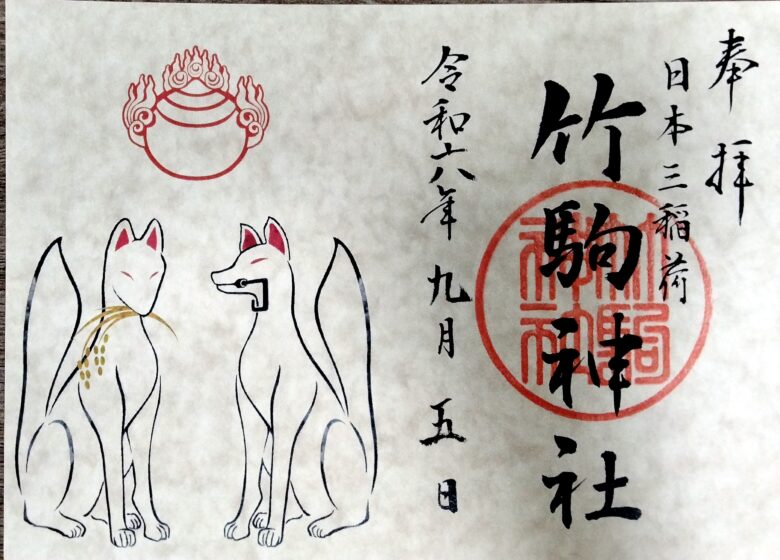 奉拝
日本三稲荷
竹駒神社
令和六年九月五日